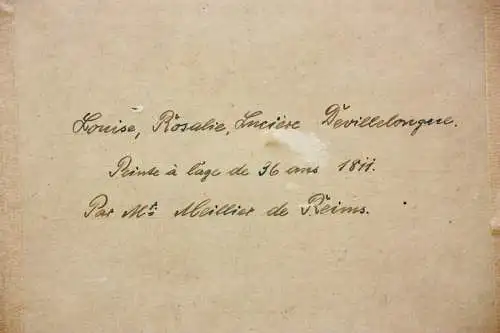 Louise, Rosalie, Lucière Devillelongue.
Peinte à l'age de 36 ans 1811.
Par Mr. Meillier de Reims.